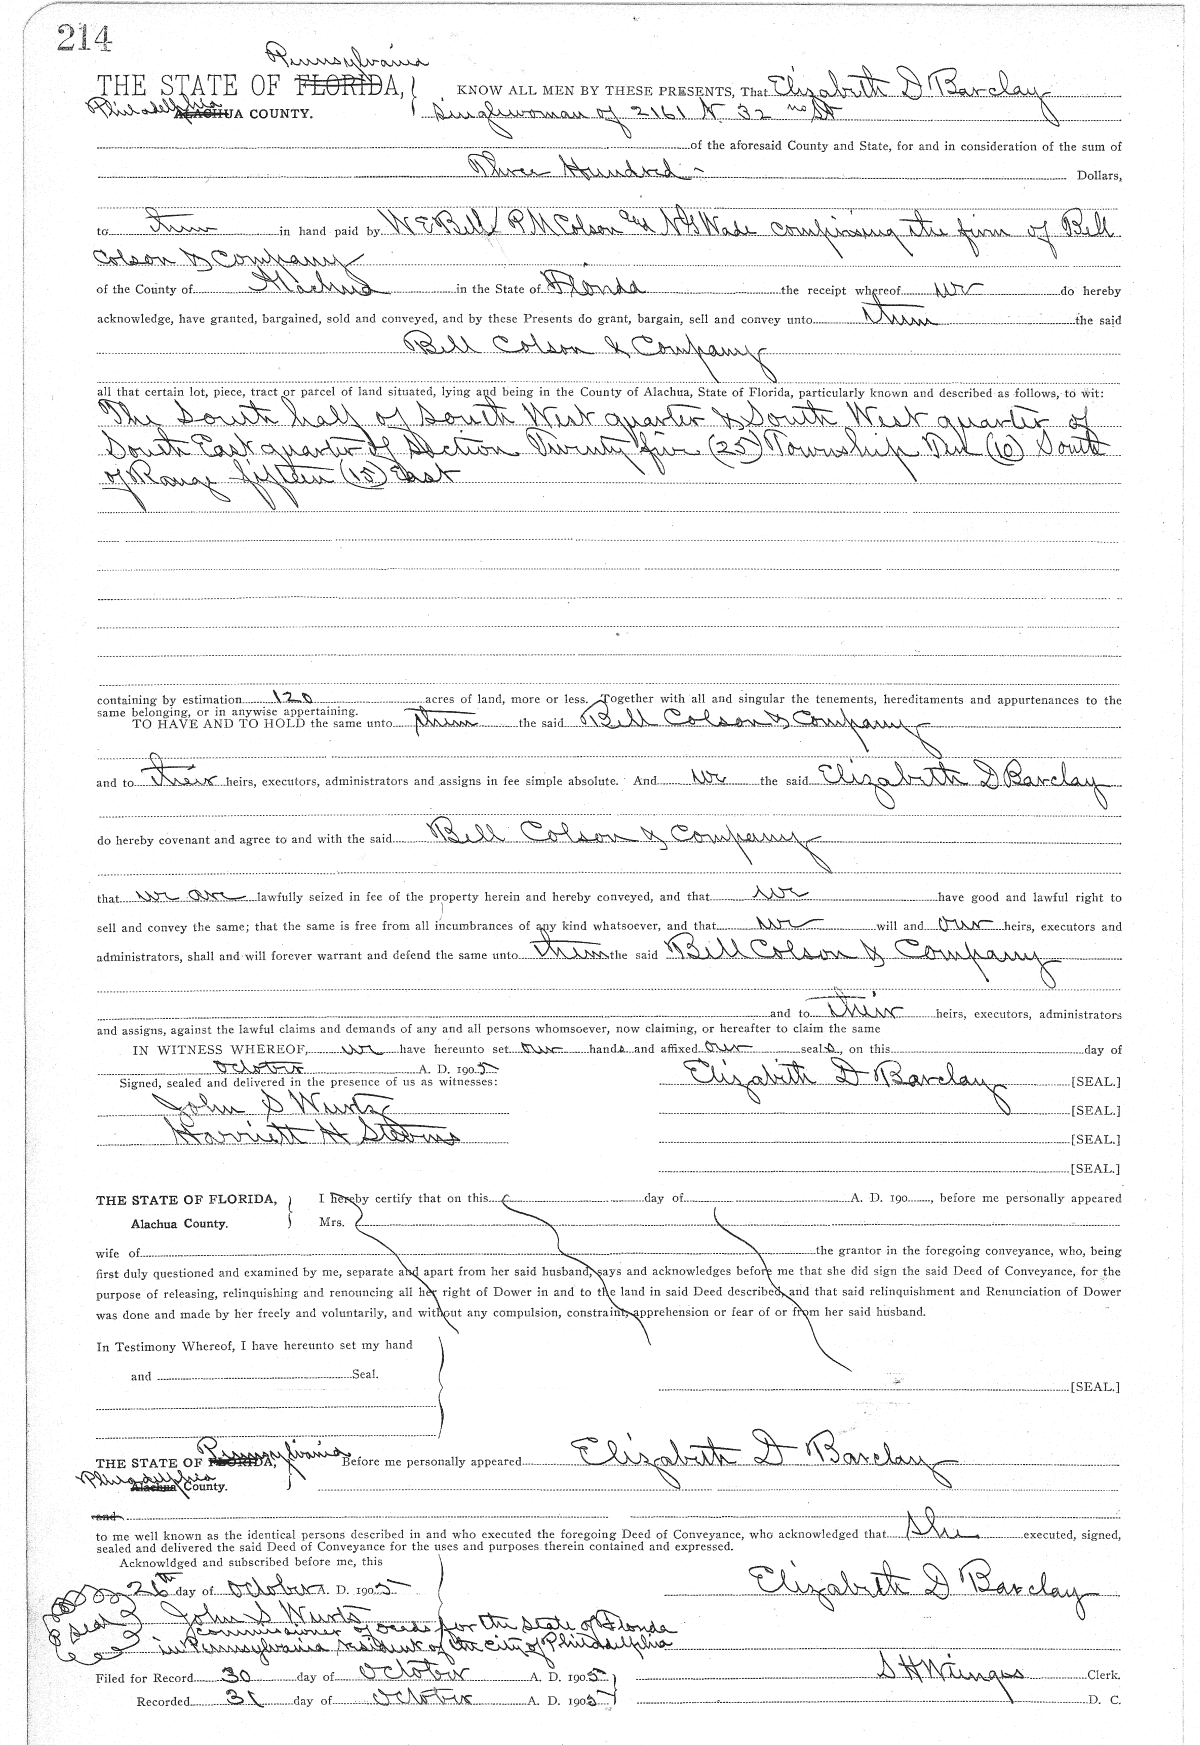 214
Pennsylvania
THE STATE OF FLORIDA, KNOW ALL MEN BY THESE PRESENTS, That Elizabeth D Barclay
Philadelphia ALACHUA COUNTY. Singlewoman of 2161 N. 32 nd St
of the aforesaid County and State, for and in consideration of the sum of
Three Hundred Dollars,
to them in hand paid by W E Bell P M Colson and N G Wade comprising the firm of Bell
Colson & Company
of the County of Alachua in the State of Florida the receipt whereof we do hereby
acknowledge, have granted, bargained, sold and conveyed, and by these Presents do grant, bargain, sell and convey unto them the said
Bell Colson & Company
all that certain lot, piece, tract or parcel of land situated, lying and being in the County of Alachua, State of Florida, particularly known and described as follows, to wit:
The South half of South West quarter & South West quarter of
South East quarter of Section Twenty five (25) Township Ten (10) South
of Range fifteen (15) East
containing by estimation 120 acres of land, more or less. Together with all and singular the tenements, hereditaments and appurtenances to the
same belonging, or in anywise appertaining.
TO HAVE AND TO HOLD the same unto them the said Bell Colson & Company
and to their heirs, executors, administrators and assigns in fee simple absolute. And we the said Elizabeth D Barclay
do hereby covenant and agree to and with the said Bell Colson & Company
that we are lawfully seized in fee of the property herein and hereby conveyed, and that we have good and lawful right to
sell and convey the same; that the same is free from all incumbrances of any kind whatsoever, and that we will and our heirs, executors and
administrators, shall and will forever warrant and defend the same unto them the said Bell Colson & Company
and to their heirs, executors, administrators
and assigns, against the lawful claims and demands of any and all persons whomsoever, now claiming, or hereafter to claim the same
IN WITNESS WHEREOF, we have hereunto set our hands and affixed our seals, on this day of
October A. D. 1905
Signed, sealed and delivered in the presence of us as witnesses: Elizabeth D Barclay [SEAL.]
John S Wurts [SEAL.]
Harriett H Stevens [SEAL.]
[SEAL.]
THE STATE OF FLORIDA, I hereby certify that on this day of A. D. 190 , before me personally appeared
Alachua County. Mrs.
wife of the grantor in the foregoing conveyance, who, being
first duly questioned and examined by me, separate and apart from her said husband, says and acknowledges before me that she did sign the said Deed of Conveyance, for the
purpose of releasing, relinquishing and renouncing all her right of Dower in and to the land in said Deed described, and that said relinquishment and Renunciation of Dower
was done and made by her freely and voluntarily, and without any compulsion, constraint, apprehension or fear of or from her said husband.
In Testimony Whereof, I have hereunto set my hand
and Seal.
[SEAL.]
Pennsylvania
THE STATE OF FLORIDA, Before me personally appeared Elizabeth D Barclay
Philadelphia
Alachua County.
and
to me well known as the identical persons described in and who executed the foregoing Deed of Conveyance, who acknowledged that She executed, signed,
sealed and delivered the said Deed of Conveyance for the uses and purposes therein contained and expressed.
Acknowldged and subscribed before me, this
26th day of October A. D. 1905 Elizabeth D Barclay
Seal John S Wurts
Commissioner of deeds for the State of Florida
in Pennsylvania resident of the City of Philadelphia
Filed for Record 30 day of October A. D. 1905 S H Wienges Clerk.
Recorded 31 day of October A. D. 1905 D. C.